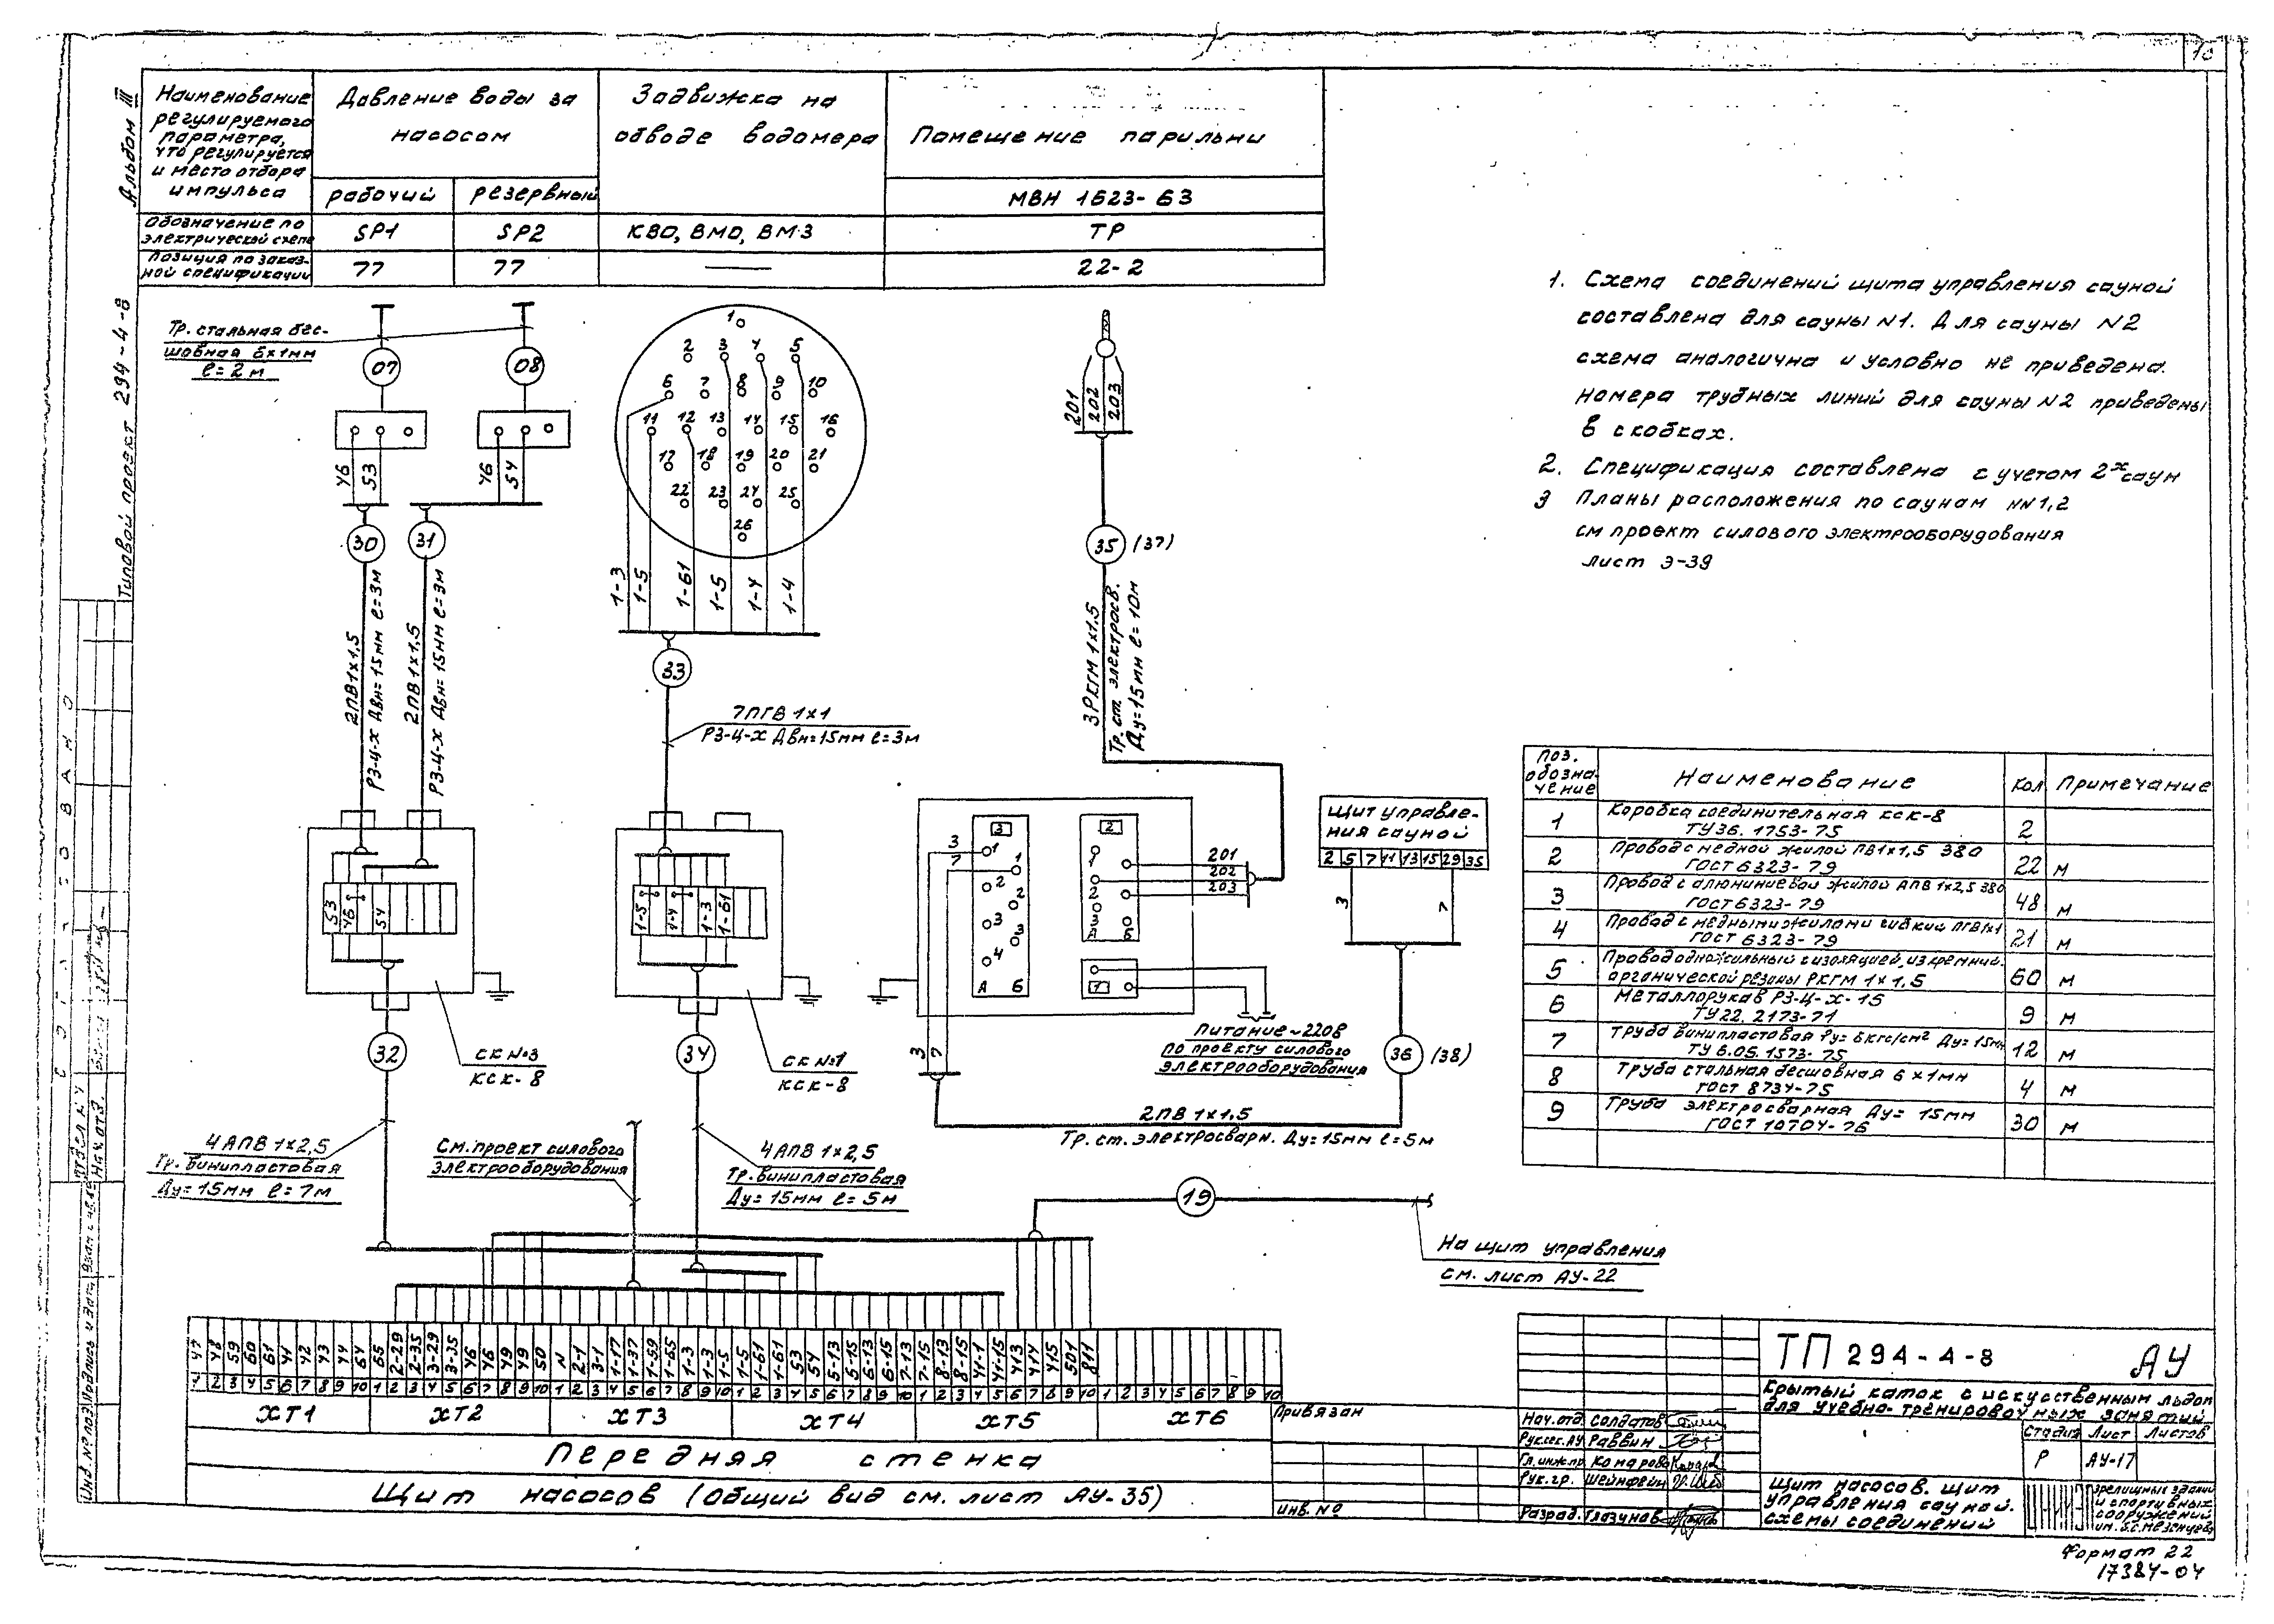 10
Альбом III
Типовой проект 294-4-8
Наименование
регулируемого
параметра,
что регулируется
и место отбора
импульса
Давление воды за
насосом
рабочий
резервный
Задвижка на
обводе водомера
Помещение парильни
МВН 1623-63
Обозначение по
электрической схеме
SP1
SP2
КВО, ВМО, ВМЗ
ТР
Позиция по заказ-
ной спецификации
77
77
22-2
Тр. стальная бес-
шовная 6х1мм
ℓ=2м
07
08
46
53
46
54
30
31
2ПВ1х1,5
РЗ-Ц-Х Двн=15мм ℓ=3м
2ПВ1х1,5
РЗ-Ц-Х Двн=15мм ℓ=3м
1
2 3 4 5
6 7 8 9 10
11 12 13 14 15 16
17 18 19 20 21
22 23 24 25
26
1-3
1-5
1-61
1-5
1-4
1-4
33
7ПГВ 1х1
РЗ-Ц-Х Двн=15мм ℓ=3м
201
202
203
35
(37)
3РКГМ 1х1,5
Тр. ст. электросв.
Ду=15мм ℓ=10м
1. Схема соединений щита управления сауной
составлена для сауны N1. Для сауны N2
схема аналогична и условно не приведена.
Номера трубных линий для сауны N2 приведены
в скобках.
2. Спецификация составлена с учетом 2х саун
3 Планы расположения по саунам NN1,2
см проект силового электрооборудования
лист Э-39
53
46
54
32
СК №3
КСК-8
1-5
1-4
1-3
1-61
34
СК №1
КСК-8
3
7
3
1
1
2
2
3
3
4
А Б
2
1
2
3
А Б
1
201
202
203
Питание ~220В
по проекту силового
электрооборудования
3
7
Щит управле-
ния сауной
2 5 7 11 13 15 29 35
3
7
36
(38)
2ПВ 1х1,5
Тр. ст. электросварн. Ду=15мм ℓ=5м
4АПВ 1х2,5
Тр. винипластовая
Ду=15мм ℓ=7м
См. проект силового
электрооборудования
4АПВ 1х2,5
Тр. винипластовая
Ду=15мм ℓ=5м
19
На щит управления
см. лист АУ-22
Поз.
обозна-
чение
Наименование
Кол
Примечание
1
Коробка соединительная КСК-8
ТУ36. 1753-75
2
2
Провод с медной жилой ПВ1х1,5 380
ГОСТ 6323-79
22
м
3
Провод с алюминиевой жилой АПВ 1х2,5 380
ГОСТ 6323-79
48
м
4
Провод с медными жилами гибкий ПГВ1х1
ГОСТ 6323-79
21
м
5
Провод одножильный с изоляцией из кремний-
органической резины РКГМ 1х1,5
60
м
6
Металлорукав РЗ-Ц-Х-15
ТУ22. 2173-71
9
м
7
Труба винипластовая Ру=6кгс/см² Ду=15мм
ТУ 6.05. 1573-75
12
м
8
Труба стальная бесшовная 6х1мм
ГОСТ 8734-75
4
м
9
Труба электросварная Ду= 15мм
ГОСТ 10704-76
30
м
47 48 59 60 61 41 42 43 44 64 65 2-29 2-35 3-29 3-35 46 46 49 49 50 N 2-1 3-1 1-17 1-37 1-59 1-65 1-3 1-3 1-5 1-5 1-61 1-61 53 54 5-13 5-15 6-13 6-15 7-13 7-15 8-13 8-15 41-1 41-15 413 414 415 501 811
1 2 3 4 5 6 7 8 9 10 1 2 3 4 5 6 7 8 9 10 1 2 3 4 5 6 7 8 9 10 1 2 3 4 5 6 7 8 9 10 1 2 3 4 5 6 7 8 9 10 1 2 3 4 5 6 7 8 9 10
ХТ1 ХТ2 ХТ3 ХТ4 ХТ5 ХТ6
Передняя стенка
Щит насосов (общий вид см. лист АУ-35)
Привязан
Инв. №
Нач.отд. Солдатов
Рук.сек.АУ Раввин
Гл.инж.пр. Комарова
Рук.гр. Шейнфейн
Разраб. Глазунов
ТП 294-4-8
АУ
Крытый каток с искусственным льдом
для учебно-тренировочных занятий
Стадия Лист Листов
Р АУ-17
Щит насосов. Щит
управления сауной.
Схемы соединений
зрелищных зданий
и спортивных
сооружений
им. Б.С. Мезенцева
Формат 22
17384-04
СОГЛАСОВАНО
Нач. отд.
Инв. № подл. Подпись и дата